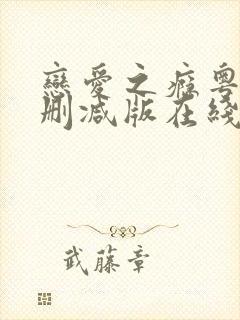 戀愛之癥粵
刪減版在綫
武藤章